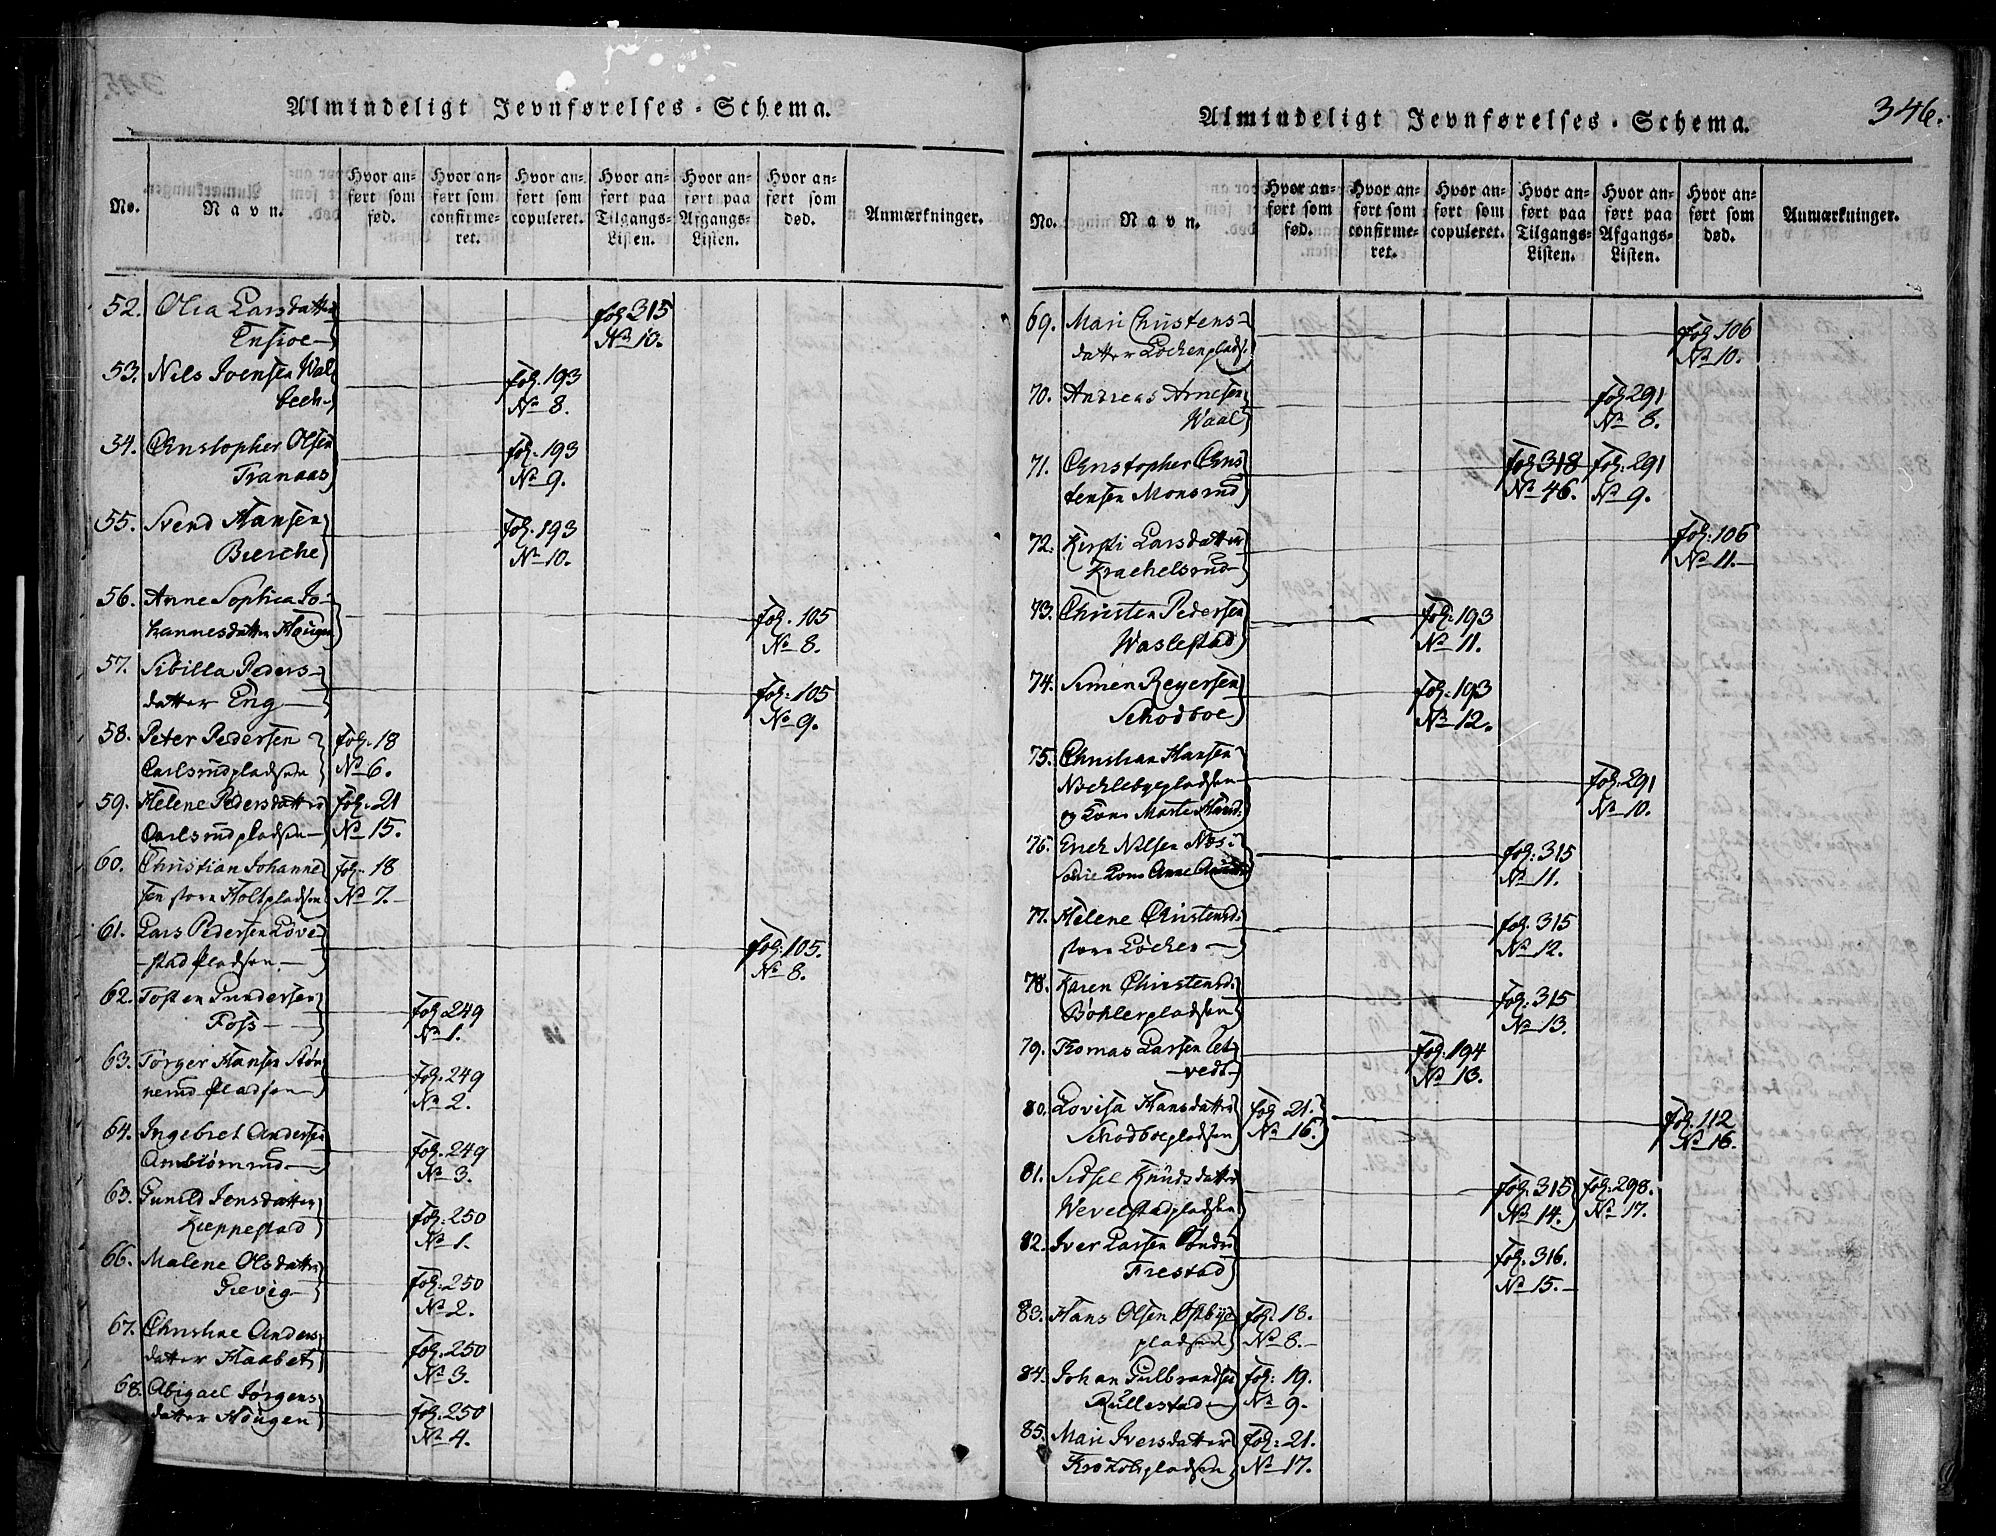 Almindeligt Jevnførelses-Schema.
No.
Navn.
Hvor an-
ført som
fød.
Hvor an-
ført som
confirme-
ret.
Hvor an-
ført som
copuleret.
Hvor an-
ført paa
Tilgangs-
Listen.
Hvor an-
ført paa
Afgangs-
Listen.
Hvor an-
ført som
død.
Anmærkninger.
52. Olia Larsdatter fol. 315
Ensioe No 10.
53. Nils Ivensen Wal fol. 193
bech No 8.
54. Christopher Olsen fol. 193
Tranaas No 9.
55. Svend Hansen fol. 193
Bierche No 10.
56. Anne Sophia Jo- fol. 105
hannesdatter Hougen No 8.
57. Sibilla Peders- fol. 105
datter Eng No 9.
58. Peter Pedersen fol. 18
Carlsrudpladsen No 6.
59. Helene Pedersdatter fol. 21
Carlsrudpladsen No 15.
60. Christian Johanne fol. 18
sen store Holtpladsen No 7.
61. Lars Pedersen Løve- fol. 105.
stad Pladsen No 8.
62. Tosten Gundersen fol. 249
Foss No 1.
63. Torger Hansen fol. 249
nerud Pladsen No 2.
64. Ingebret Andersen fol. 249
Ambiørnrud No 3.
65. Gunild Jensdatter fol. 250
Kieppestad No 1.
66. Malene Olsdatter fol. 250
Grevig No 2.
67. Christine Anders fol. 250
datter Haabet No 3.
68. Abigael Jørgens fol. 250
datter Hougen No 4.
346.
Almindeligt Jevnførelses-Schema.
No.
Navn.
Hvor an-
ført som
fød.
Hvor an-
ført som
confirme-
ret.
Hvor an-
ført som
copuleret.
Hvor an-
ført paa
Tilgangs-
Listen.
Hvor an-
ført paa
Afgangs-
Listen.
Hvor an-
ført som
død.
Anmærkninger.
69. Mari Christens- fol. 106
datter Løchenplads. No 10.
70. Andreas Arnesen fol. 291
Waal No 8.
71. Christopher Chris fol. 318 fol. 291
tensen Monsrud No 46. No 9.
72. Kirsti Larsdatter fol. 106
Krachelsrud No 11.
73. Christen Pedersen fol. 193
Waslestad No 11.
74. Simen Reyersen fol. 193
Schodboe No 12.
75. Christian Hansen
Nochlebyepladsen fol. 291
og Kone Marte Hansd. No 10.
76. Erich Nilsen Næs- fol. 315
Kone Anne No 11.
77. Helene Christensd. fol. 315
store Løchen No 12.
78. Karen Christensd. fol. 315
Bøhlerpladsen No 13.
79. Thomas Larsen fol. 194
vedt No 13.
80. Lovisa Hansdatter fol. 21. fol. 112
Schodboepladsen No 16. No 16.
81. Sidsel Knudsdatter fol. 315 fol. 298.
Wevelstadpladsen No 14. No 17.
82. Iver Larsen Søndre fol. 316.
Frestad No 15.
83. Hans Olsen Østbye fol. 18.
pladsen No 8.
84. Johan Gulbrandsen fol. 19.
Rullestad No 9.
85. Mari Iversdatter fol. 21.
No 17.